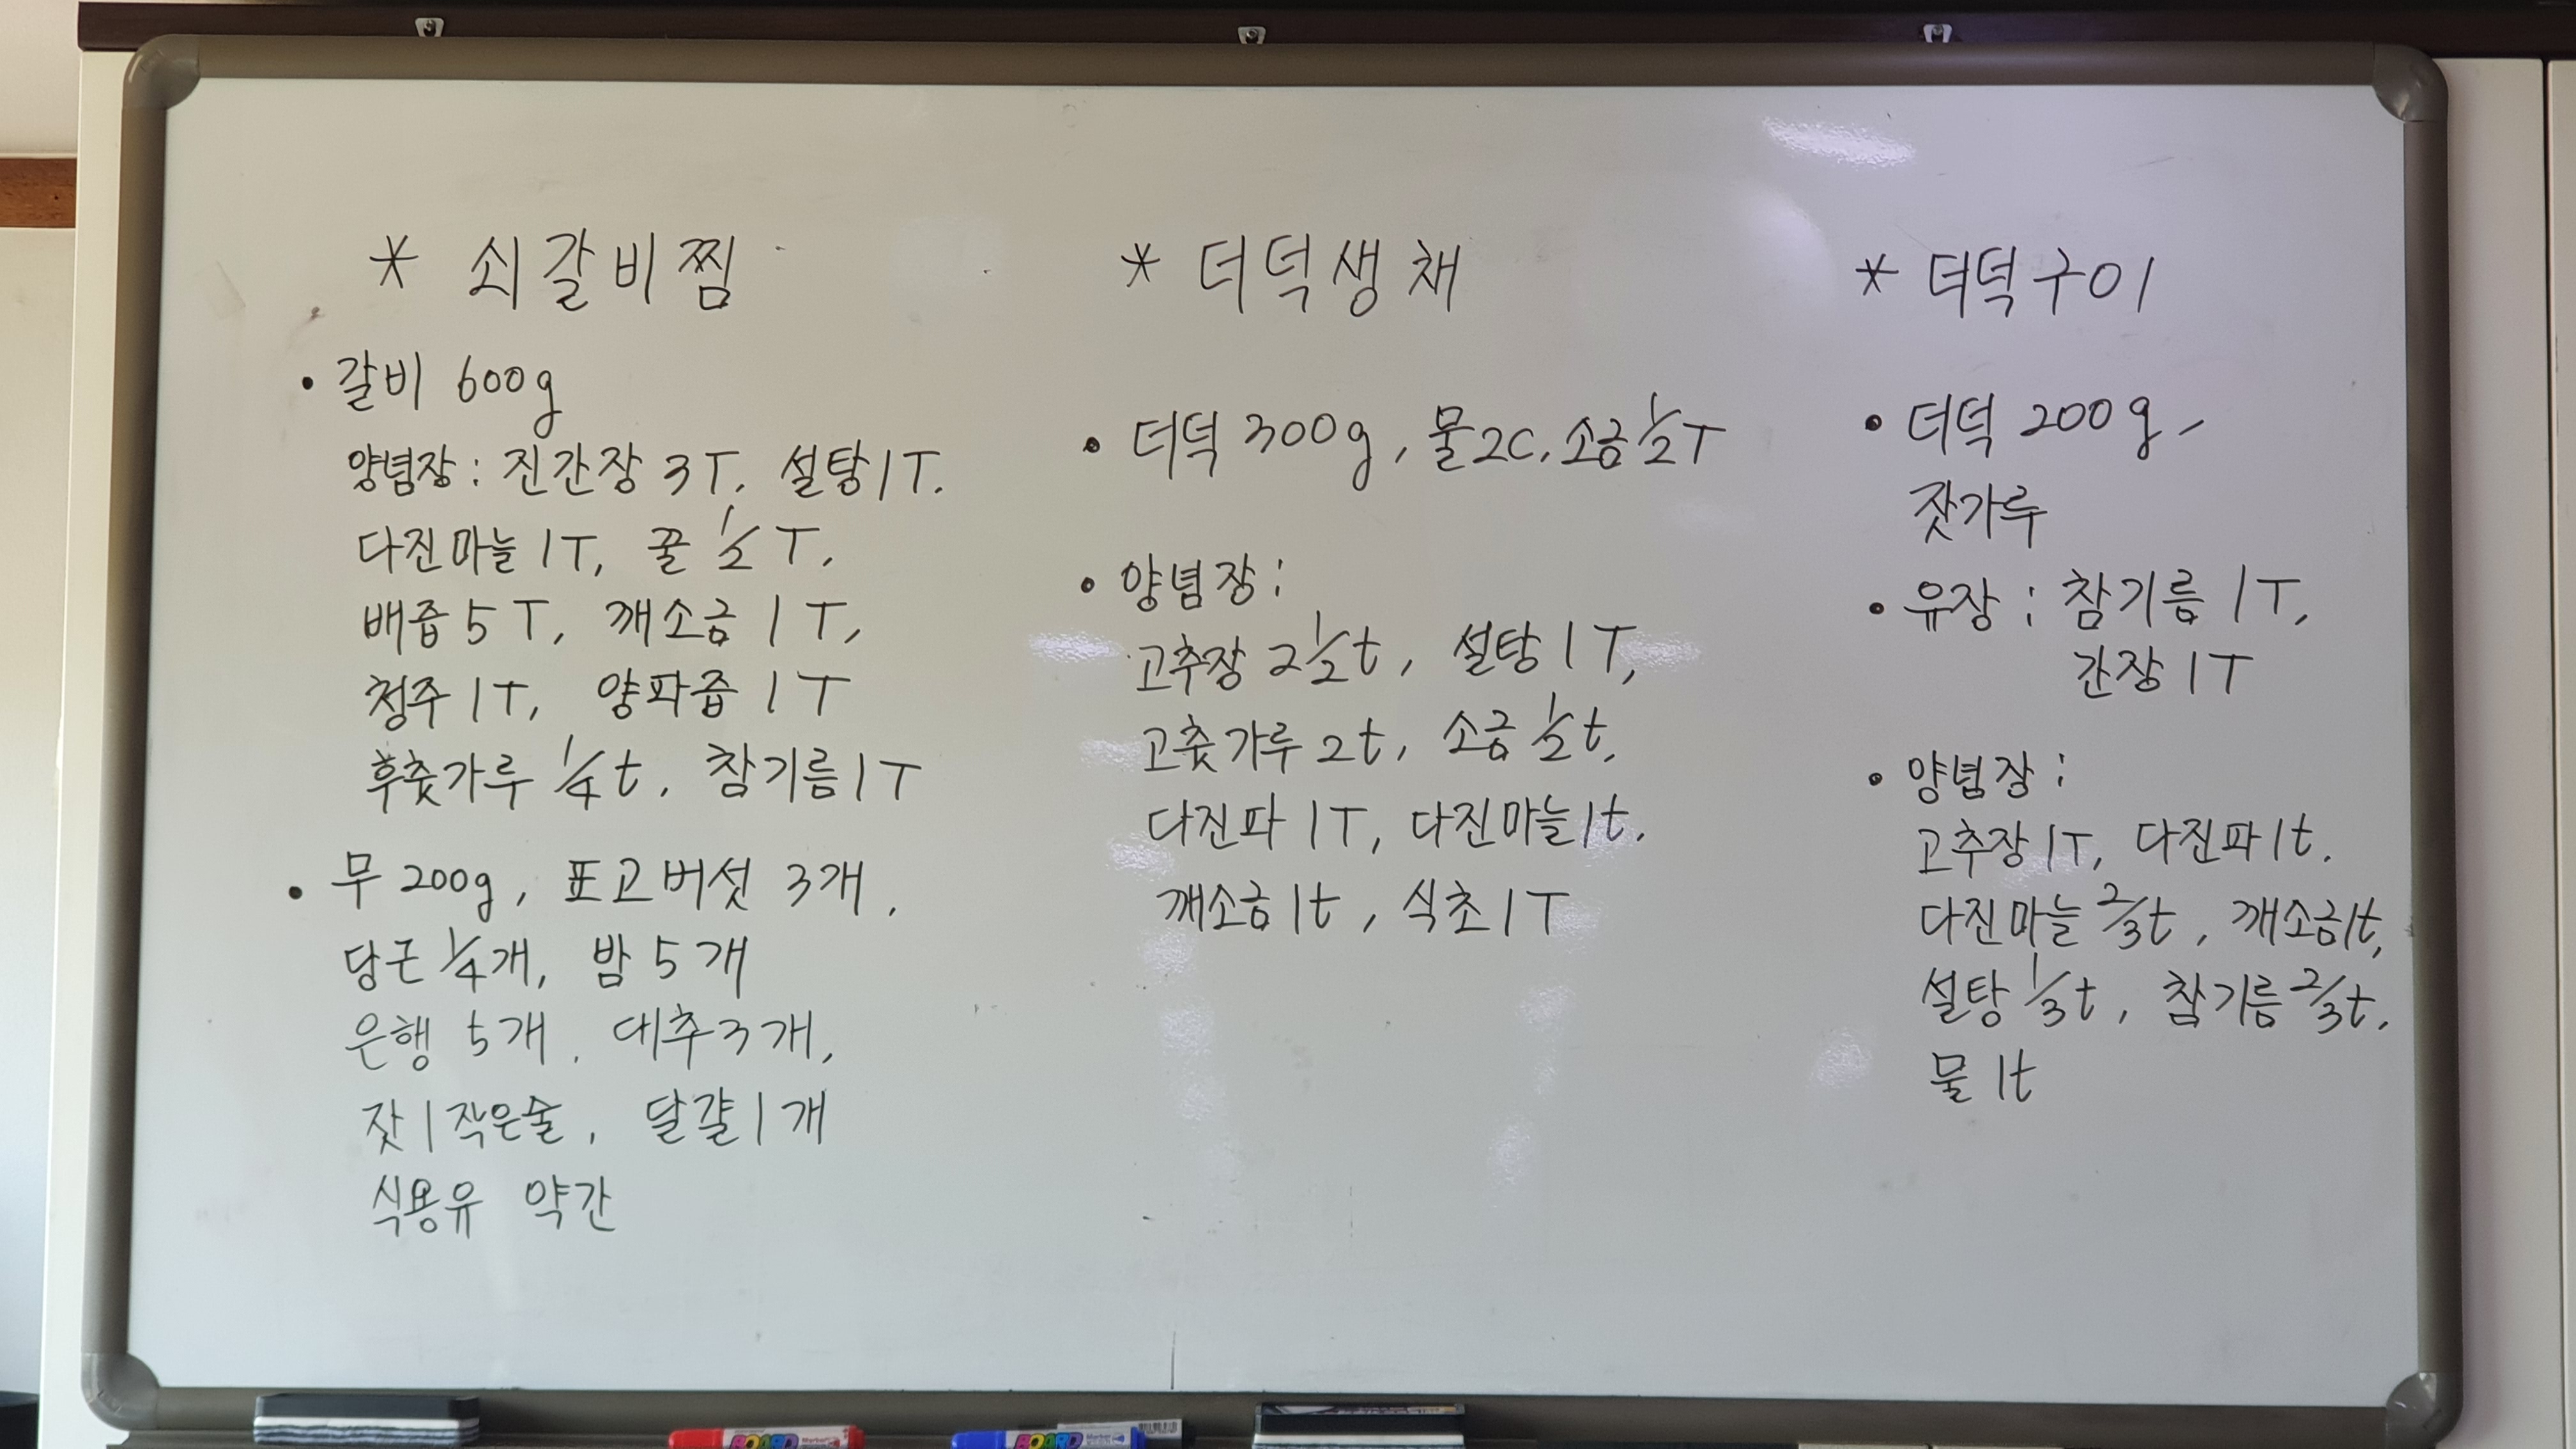 * 쇠갈비찜
• 갈비 600g
양념장 : 진간장 3T, 설탕 1T.
다진마늘 1T, 꿀 1/2 T,
배즙 5T, 깨소금 1T,
청주 1T, 양파즙 1T
후춧가루 1/4 t, 참기름 1T
• 무 200g, 표고버섯 3개,
당근 1/4개, 밤 5개
은행 5개, 대추 3개,
잣 1작은술, 달걀 1개
식용유 약간
* 더덕생채
• 더덕 300g, 물 2C, 소금 1/2 T
• 양념장 :
고추장 2 1/2 t, 설탕 1T,
고춧가루 2t, 소금 1/2 t,
다진파 1T, 다진마늘 1t.
깨소금 1t, 식초 1T
* 더덕구이
• 더덕 200g,
잣가루
• 유장 : 참기름 1T,
간장 1T
• 양념장 :
고추장 1T, 다진파 1t.
다진마늘 2/3t, 깨소금 1t,
설탕 1/3t, 참기름 2/3t.
물 1t
BOARD Marker
BOARD Marker